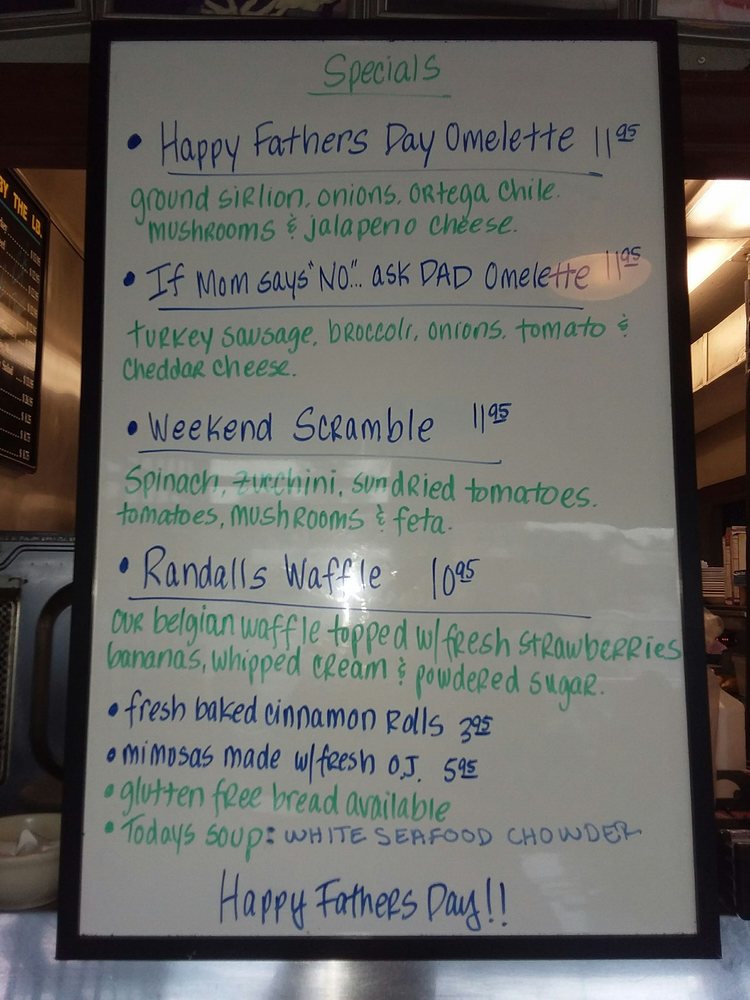 Specials
• Happy Fathers Day Omelette 11.95
ground sirlion, onions, ortega chile.
mushrooms & jalapeno cheese.
• If Mom says "NO"... ask DAD Omelette 11.95
turkey sausage, broccoli, onions, tomato &
cheddar cheese.
• Weekend Scramble 11.95
Spinach, zucchini, sundried tomatoes.
tomatoes, mushrooms & feta.
• Randalls Waffle 10.95
our belgian waffle topped w/fresh strawberries
bananas, whipped cream & powdered sugar.
• fresh baked cinnamon rolls 3.95
• mimosas made w/fresh O.J. 5.95
• glutten free bread available
• Todays soup: WHITE SEAFOOD CHOWDER
Happy Fathers Day!!
BY THE LB.